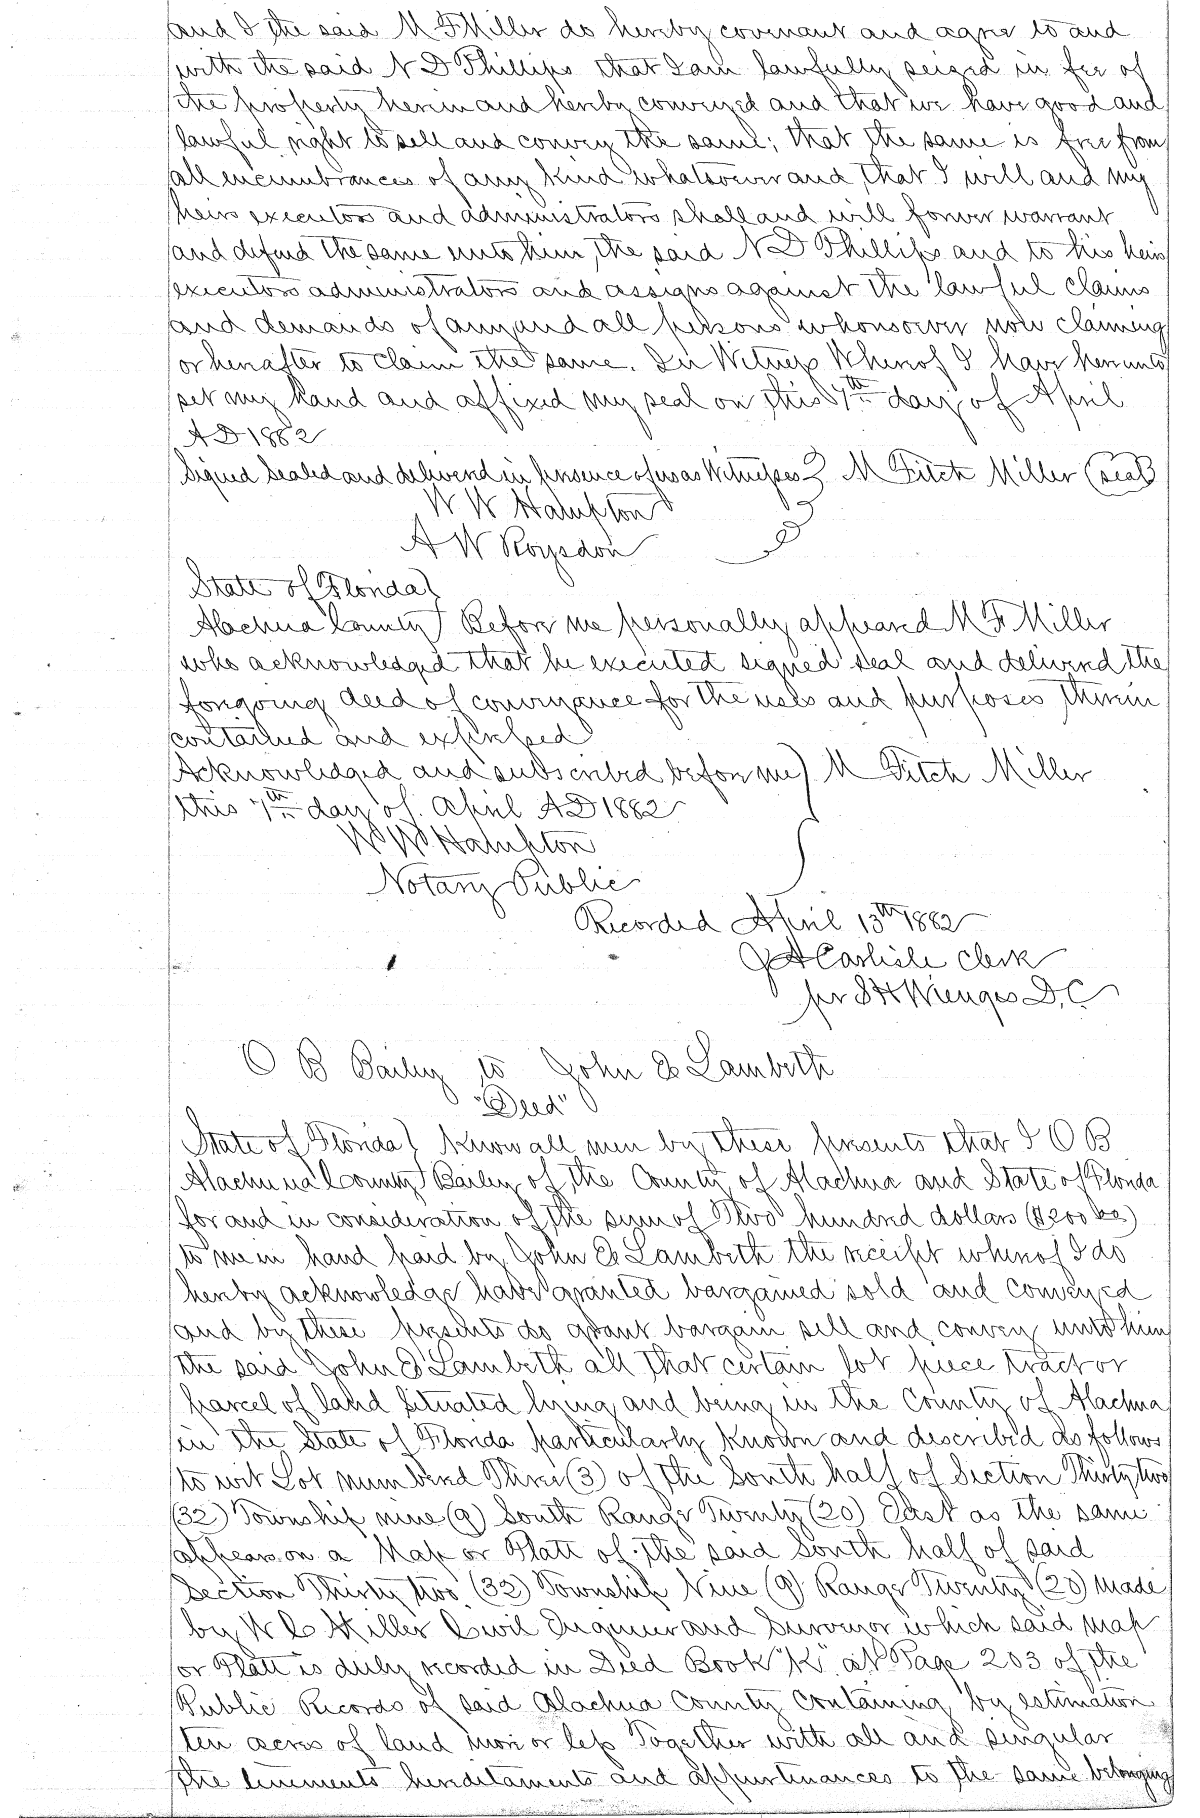 and I the said M F Miller do hereby covenant and agree to and
with the said N D Phillips that I am lawfully seized in fee of
the property herein and hereby conveyed and that we have good and
lawful right to sell and convey the same; that the same is free from
all encumbrances of any kind whatsoever and that I will and my
heirs executors and administrators shall and will forever warrant
and defend the same unto him, the said N D Phillips and to his heirs
executors administrators and assigns against the lawful claims
and demands of any and all persons whomsoever now claiming
or hereafter to claim the same. In Witness Whereof I have hereunto
set my hand and affixed my seal on this 7th day of April
AD 1882
Signed Sealed and delivered in presence of us as Witnesses } M Fitch Miller (seal)
W W Hampton
A W Roysdon
State of Florida }
Alachua County } Before me personally appeared M F Miller
who acknowledged that he executed signed seal and delivered the
foregoing deed of conveyance for the uses and purposes therein
contained and expressed
Acknowledged and subscribed before me } M Fitch Miller
this 7th day of April AD 1882
W W Hampton
Notary Public
Recorded April 13th 1882
J A Carlisle Clerk
per S H Wienges D.C
O B Bailey to John E Lambeth
"Deed"
State of Florida } Know all men by these presents that I O B
Alachua County } Bailey of the County of Alachua and State of Florida
for and in consideration of the sum of Two hundred dollars ($200 00)
to me in hand paid by John E Lambeth the receipt whereof I do
hereby acknowledge have granted bargained sold and conveyed
and by these presents do grant bargain sell and convey unto him
the said John E Lambeth all that certain lot piece tract or
parcel of land situated lying and being in the County of Alachua
in the State of Florida particularly known and described as follows
to wit Lot numbered Three (3) of the South half of Section Thirty two
(32) Township nine (9) South Range Twenty (20) East as the same
appears on a Map or Platt of the said South half of said
Section Thirty two (32) Township Nine (9) Range Twenty (20) made
by Miller Civil Engineer and Surveyor which said map
or Platt is duly recorded in Deed Book "K" at Page 203 of the
Public Records of said Alachua County containing by estimation
ten acres of land more or less Together with all and singular
the tenements hereditaments and appurtenances to the same belonging